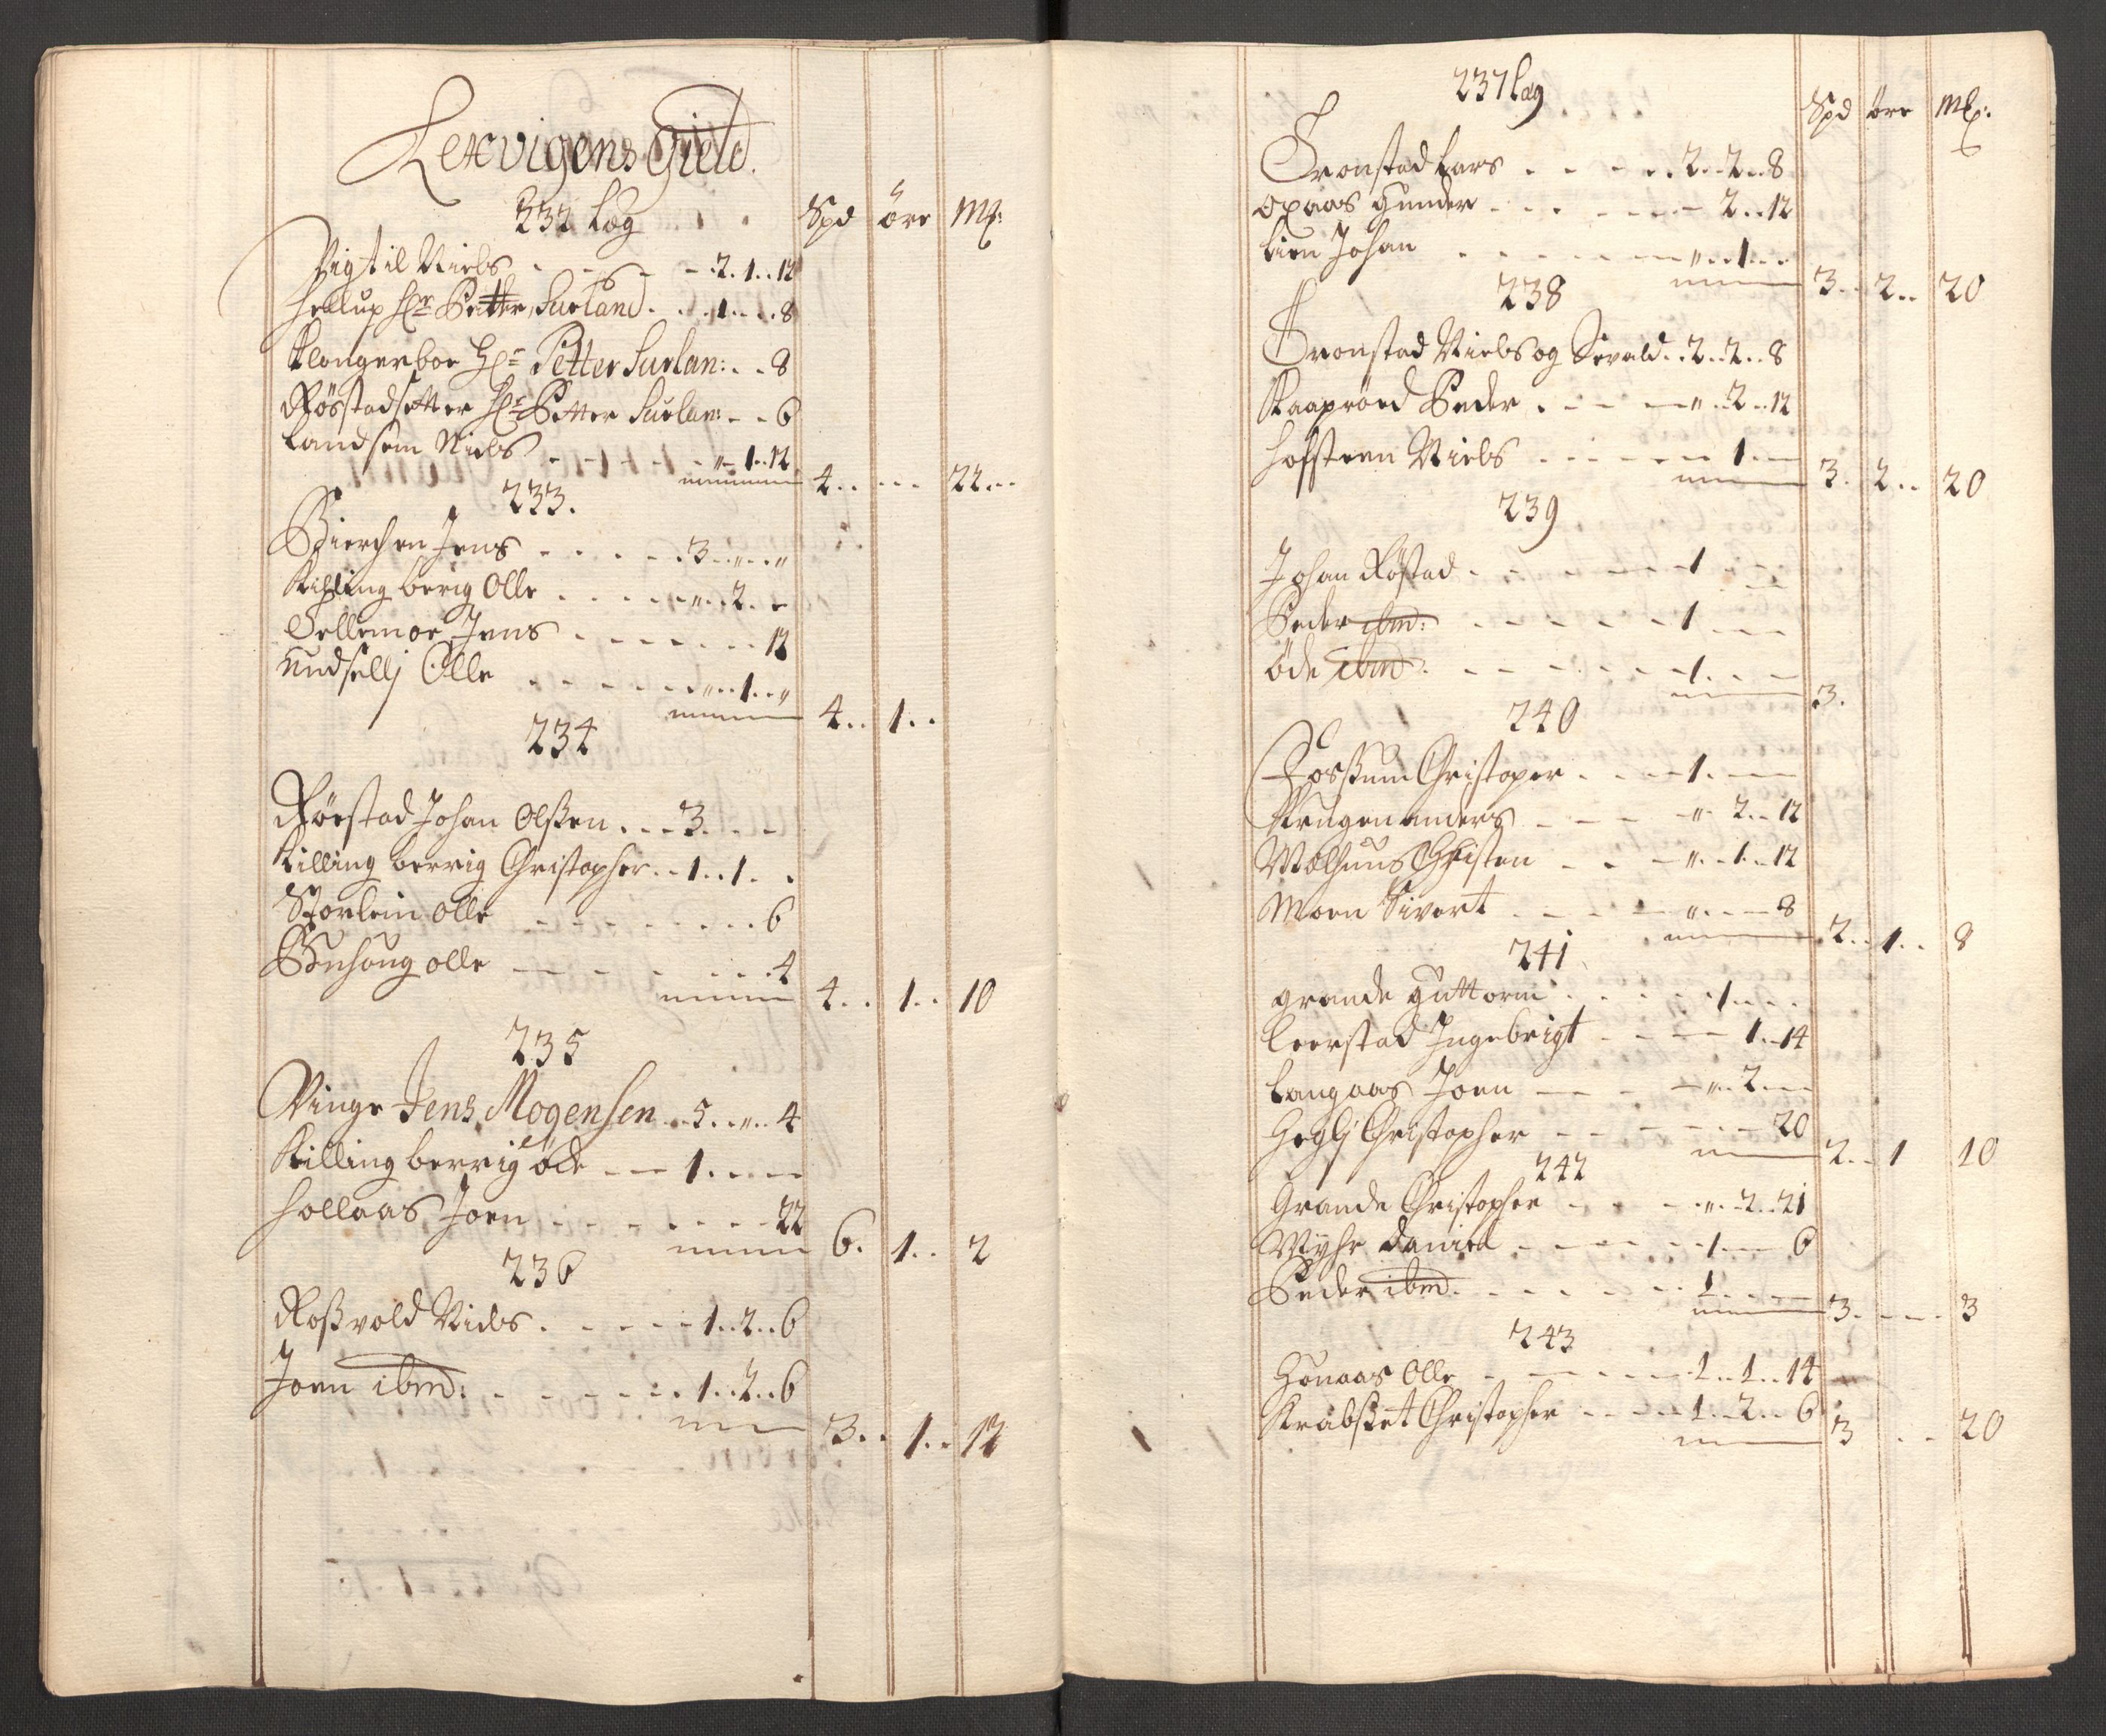 Lexvigens Gield.
232 læg
Spd öre Ml:
Vigtil Niels . - - - 2. 1.. 12
Hellup Hr Petter Surland . . 1 . . . 8
Klongerboe Hr Petter Surlan: . . 8
Röstadsetter Hr Petter Surlan: - - 6
Landsem Niels - - - - „- 1.. 12
4.. ... 22...
233.
Bierchen Jens - . . . . 3..„..„
Kihling berig Olle . . . . . „.. 2. -
Sellemoe Jens . - - - - . . 12
Nudsellj Olle . - - - - . . „.. 1..„
4.. 1..
234
Röestad Johan Olssen . . . 3. - -
Killing berrig Christopher. . 1. . 1. .
Storlein Olle - - - - . . . 6
Buhaug olle — - - - . . . 4
4.. 1.. 10
235
Vinge Jens Mogensen .. 5..„.. 4
Killing berrig öde - - - 1. . - -
Hollaas Joen - - - . . - - 22
6. 1.. 2
236
Rossvold Niels . - - - - 1.. 2.. 6
Joen ibm: - - - - - . . 1.. 2.. 6
3.. 1.. 12
237 læg
Spd öre Ml:
Tronstad Lars . - - - . . 2.. 2.. 8
Opaas Gunder - . . . - - - 2.. 12
Lien Johan . . . - - - - „.. 1. . -
3.. 2.. 20
238
Tronstad Niels og Sevald. . 2.. 2.. 8
Kaapröed Peder . - - - - „.. 2.. 12
Hofsteen Niels - . - - - - 1. - -
3. 2.. 20
239
Johan Röstad - - - - - - 1 - - -
Peder ibm: - - - - - - 1 - - -
öde ibm . - - - - - . 1. - - -
3.
240
Fossum Christoper . . . - 1. - -
Krngen anders - - - - „. 2.. 12
Molhuus Christen - - - „.. 1.. 12
Moen Sivert . - - - „. . - 8
2.. 1.. 8
241
grande Guttorm . . . . . 1. . . .
Leerstad Ingebrigt - - - - 1.. 14
Langaas Joen — - - - „.. 2. - -
Heglj Christopher - - - - - - 20
2.. 1 10
242
Grande Christopher - - - - „.. 2.. 21
Myhr Daniel - - - - - - 1 - - 6
Peder ibm. . - - - - - . 1 . - -
3. - - - 3
243
Hönaas Olle - - - - - 1.. 1.. 14
Krabset Christopher - - - - 1.. 2.. 6
3 . . 20